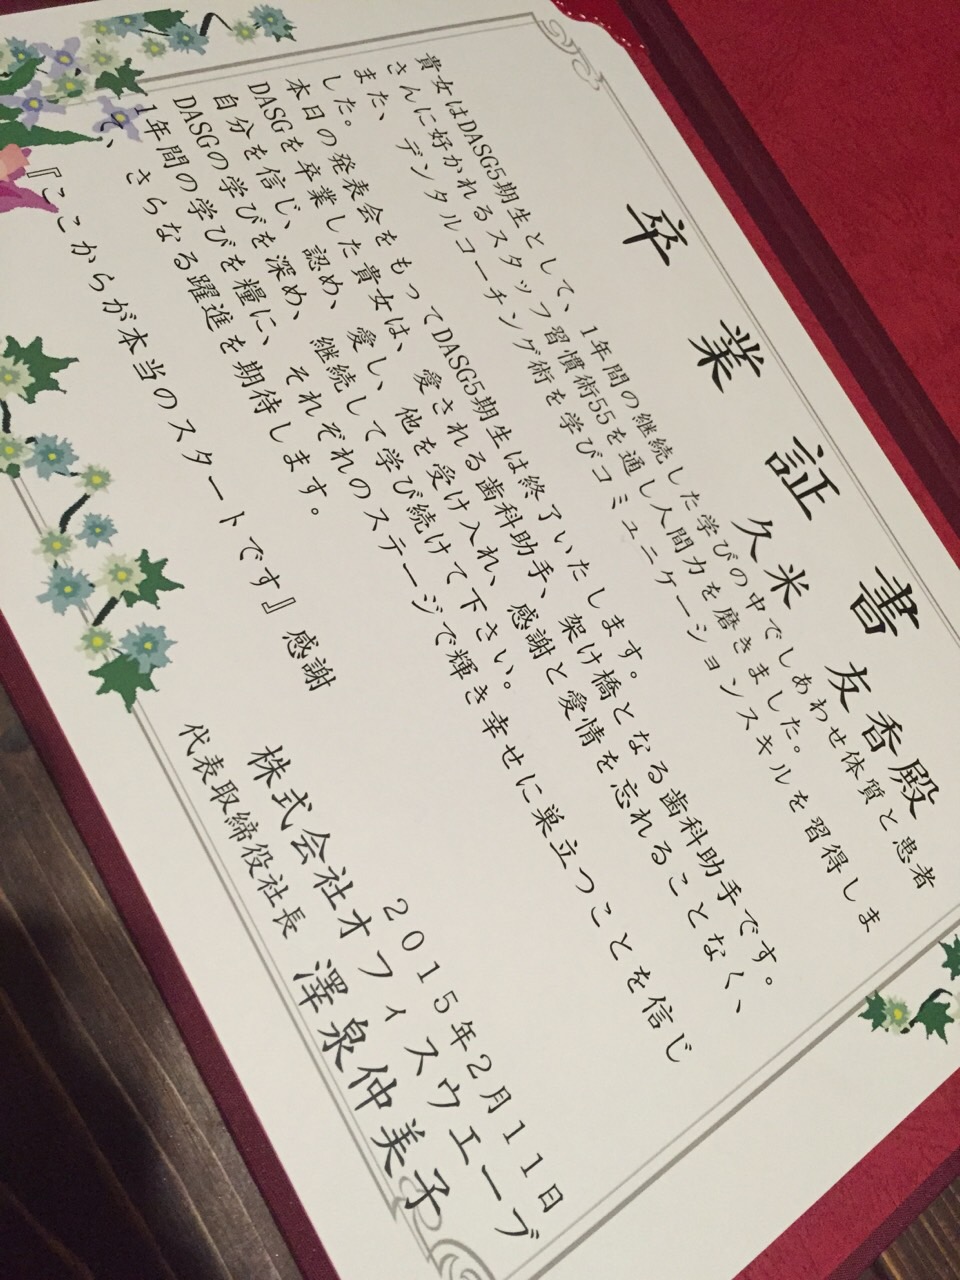 卒業証書
久米 友香殿
貴女はDASG5期生として、1年間の継続した学びの中でしあわせ体質と患者
さんに好かれるスタッフ習慣術55を通し人間力を磨きました。
また、デンタルコーチング術を学びコミュニケーションスキルを習得しま
した。
本日の発表会をもってDASG5期生は終了いたします。
DASGを卒業した貴女は、愛される歯科助手、架け橋となる歯科助手です。
自分を信じ、認め、愛し、他を受け入れ、感謝と愛情を忘れることなく、
DASGの学びを深め、継続して学び続けて下さい。
1年間の学びを糧に、それぞれのステージで輝き幸せに巣立つことを信じ
て、さらなる躍進を期待します。
『ここからが本当のスタートです』感謝
2015年2月11日
株式会社オフィスウエーブ
代表取締役社長 澤泉仲美子